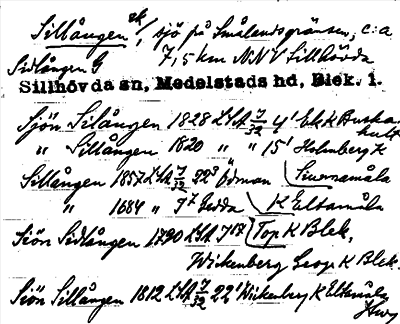 Sillången sk/, sjö på Smålandsgränsen, c:a
7,5 km NNV Sillhövda
Sidlången G
Sillhövda sn, Medelstads hd, Blek. l.
Sjön Silången 1828 LSA 7/32 4' Ek K Buska-
hult
" Sillången 1820 " " 15' Holmberg K
Sillången 1857 LSA 7/32 22³ Ödman Smorramåla
" 1684 " 7 Gedda K Eltamåla
Sjön Sidlången 1790 LSA Top K Blek.
Wickenberg Geogr K Blek.
Sjön Sillången 1812 LSA 7/32 22' Wickenberg K Eltamåla